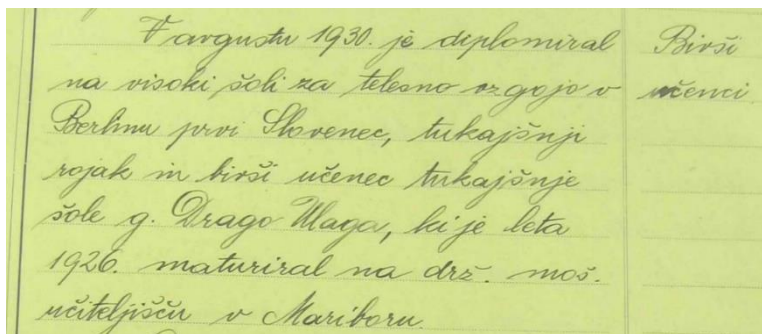 V avgustu 1930. je diplomiral
na visoki šoli za telesno vzgojo v
Berlinu prvi Slovenec, tukajšnji
rojak in bivši učenec tukajšnje
šole g. Drago Ulaga, ki je leta
1926. maturiral na drž. moš.
učiteljišču v Mariboru.
Bivši
učenci